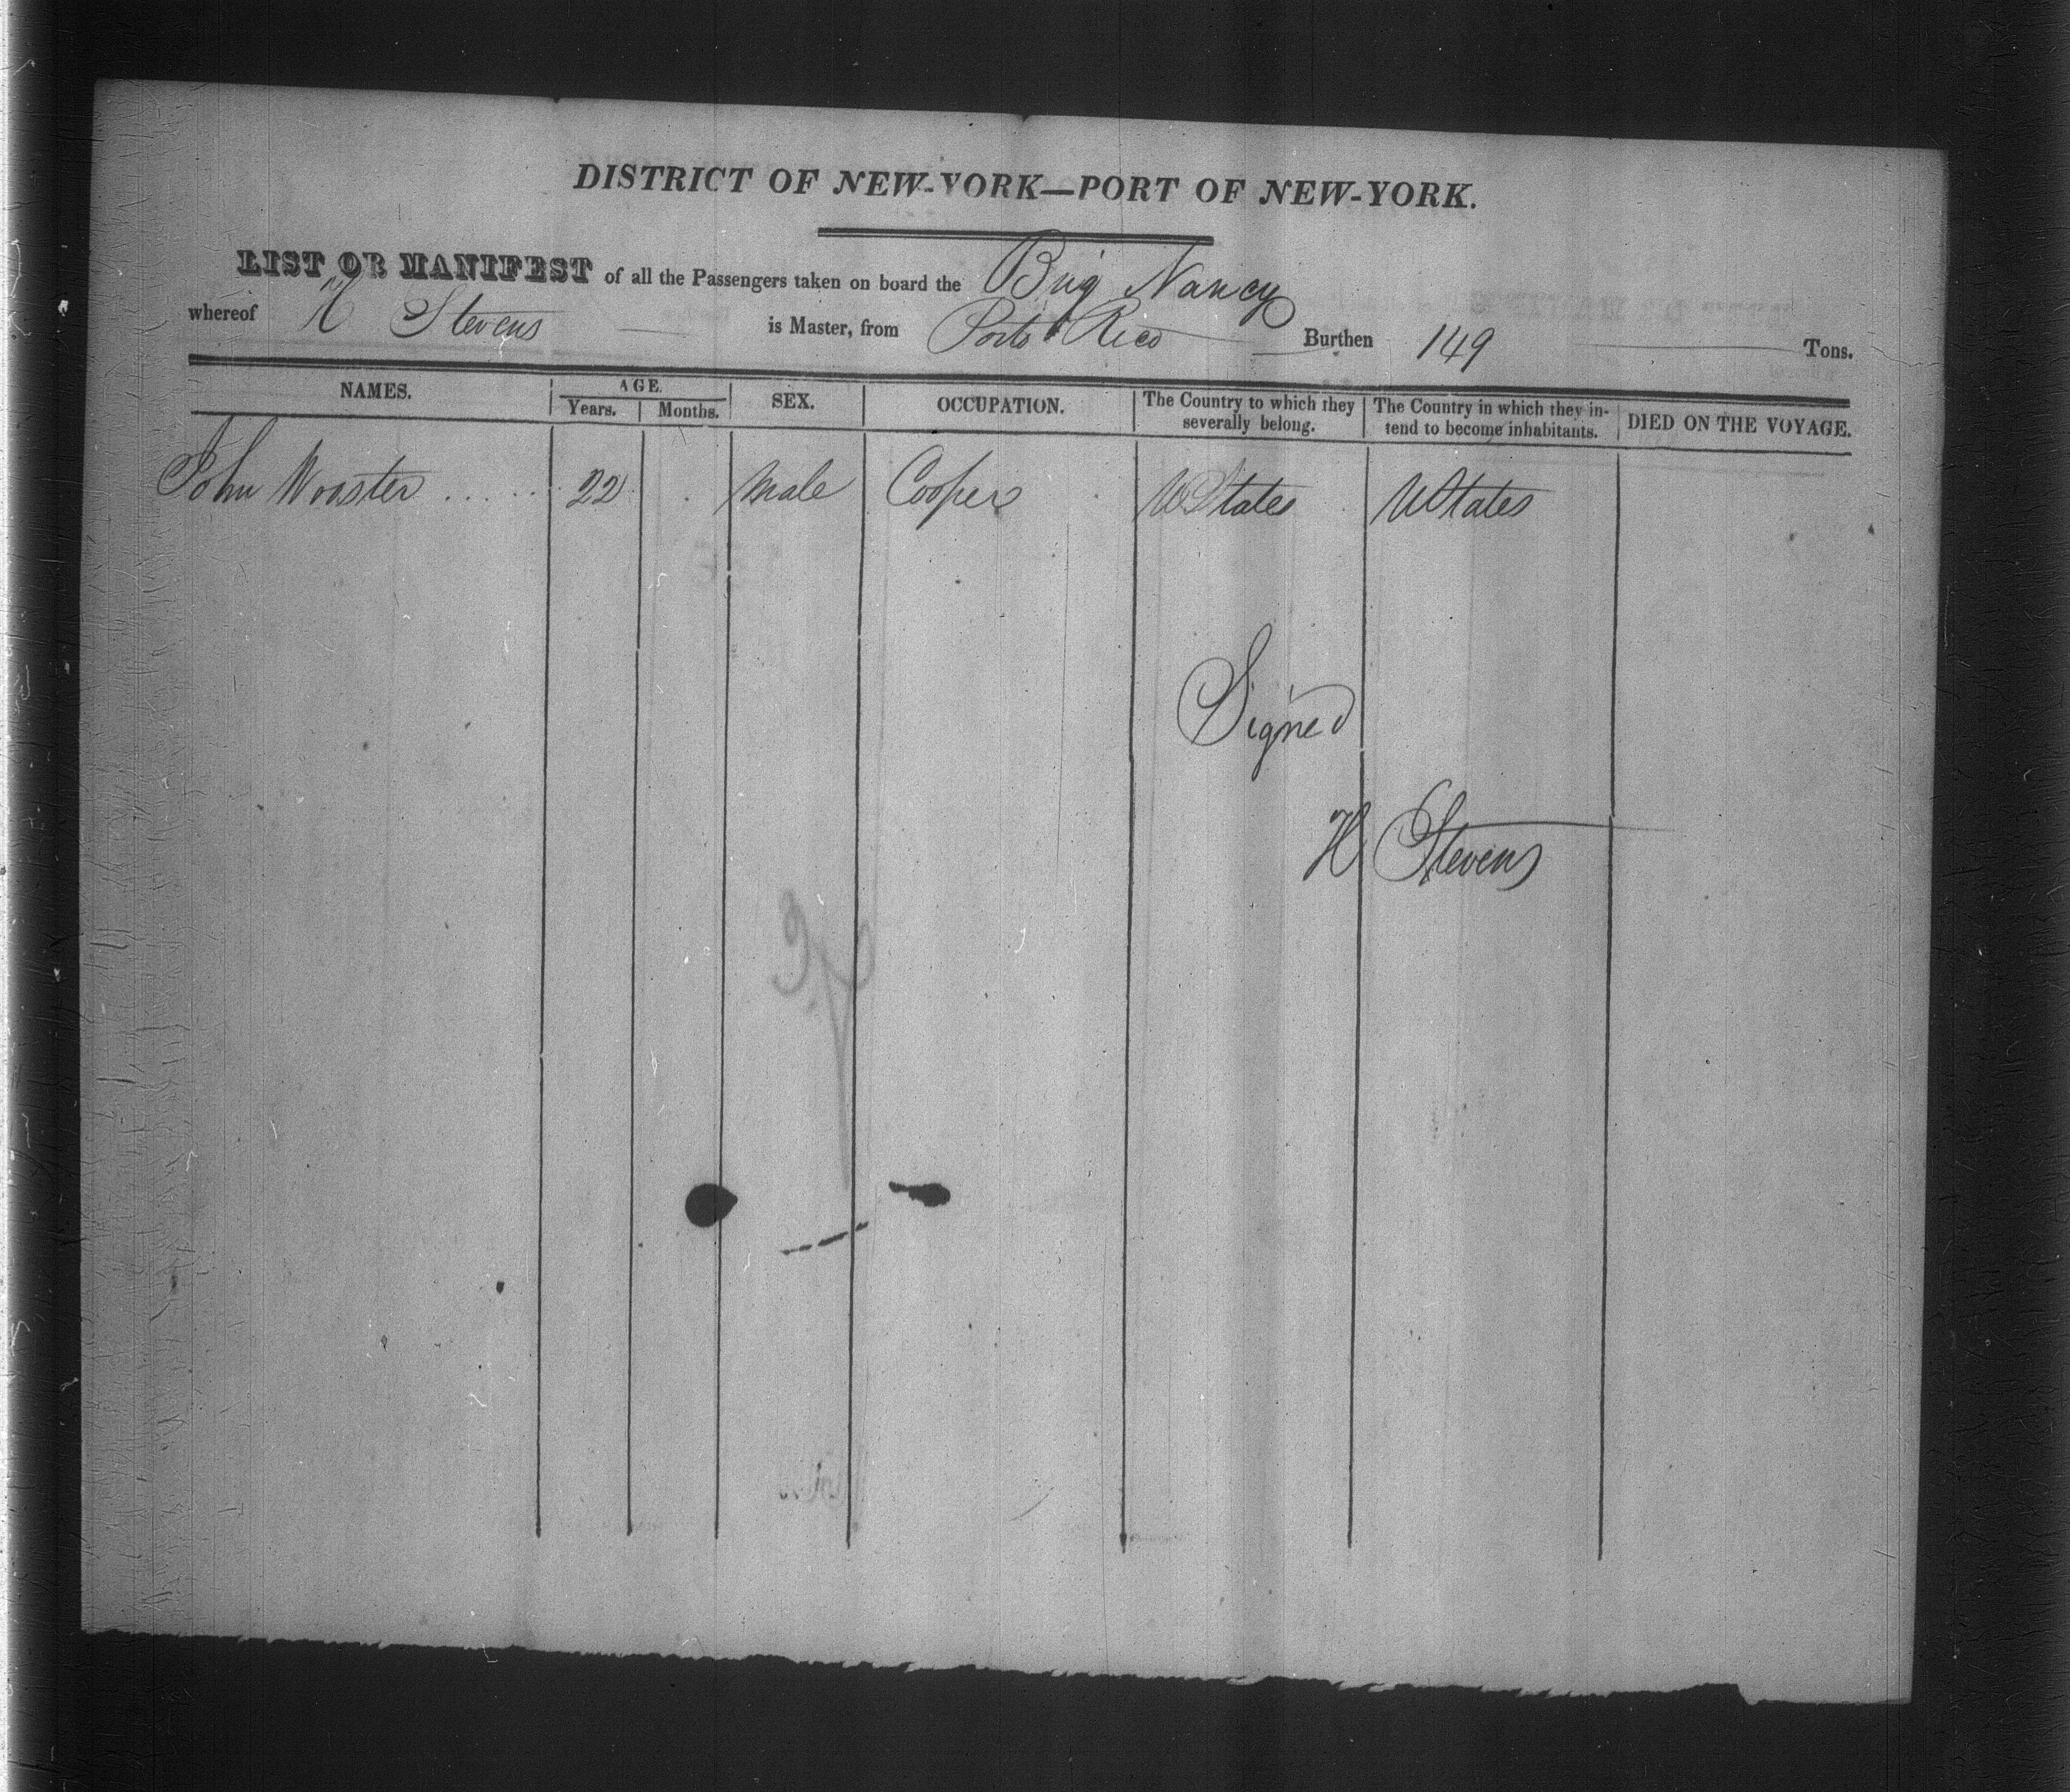 DISTRICT OF NEW-YORK—PORT OF NEW-YORK.
LIST OR MANIFEST of all the Passengers taken on board the Brig Nancy
whereof H Stevens is Master, from Porto Rico Burthen 149 Tons.
NAMES. AGE. Years. Months. SEX. OCCUPATION. The Country to which they severally belong. The Country in which they intend to become inhabitants. DIED ON THE VOYAGE.
John Wooster 22 Male Cooper U States U States
Signed
H Stevens